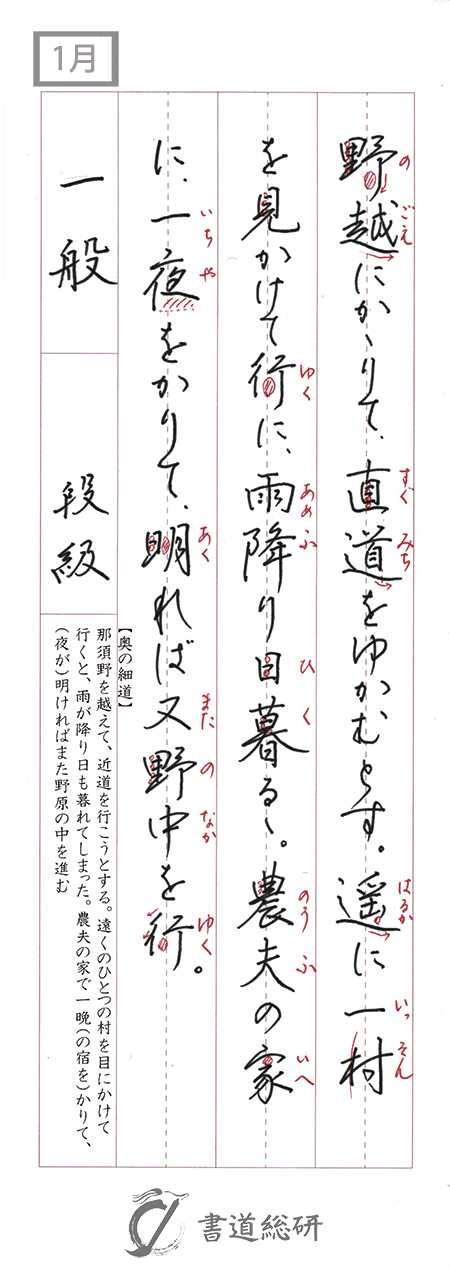 1月
野越にかゝりて、直道をゆかむとす。遥に一村
のごえ
すぐみち
はるか
いっそん
を見かけて行に、雨降り日暮るゝ。農夫の家
ゆく
あめふ
ひく
のうふ
いへ
に、一夜をかりて、明れば又野中を行。
いちや
あく
また
のなか
ゆく
一般
段級
【奥の細道】
那須野を越えて、近道を行こうとする。遠くのひとつの村を目にかけて
行くと、雨が降り日も暮れてしまった。農夫の家で一晩(の宿を)かりて、
(夜が)明ければまた野原の中を進む
書道総研